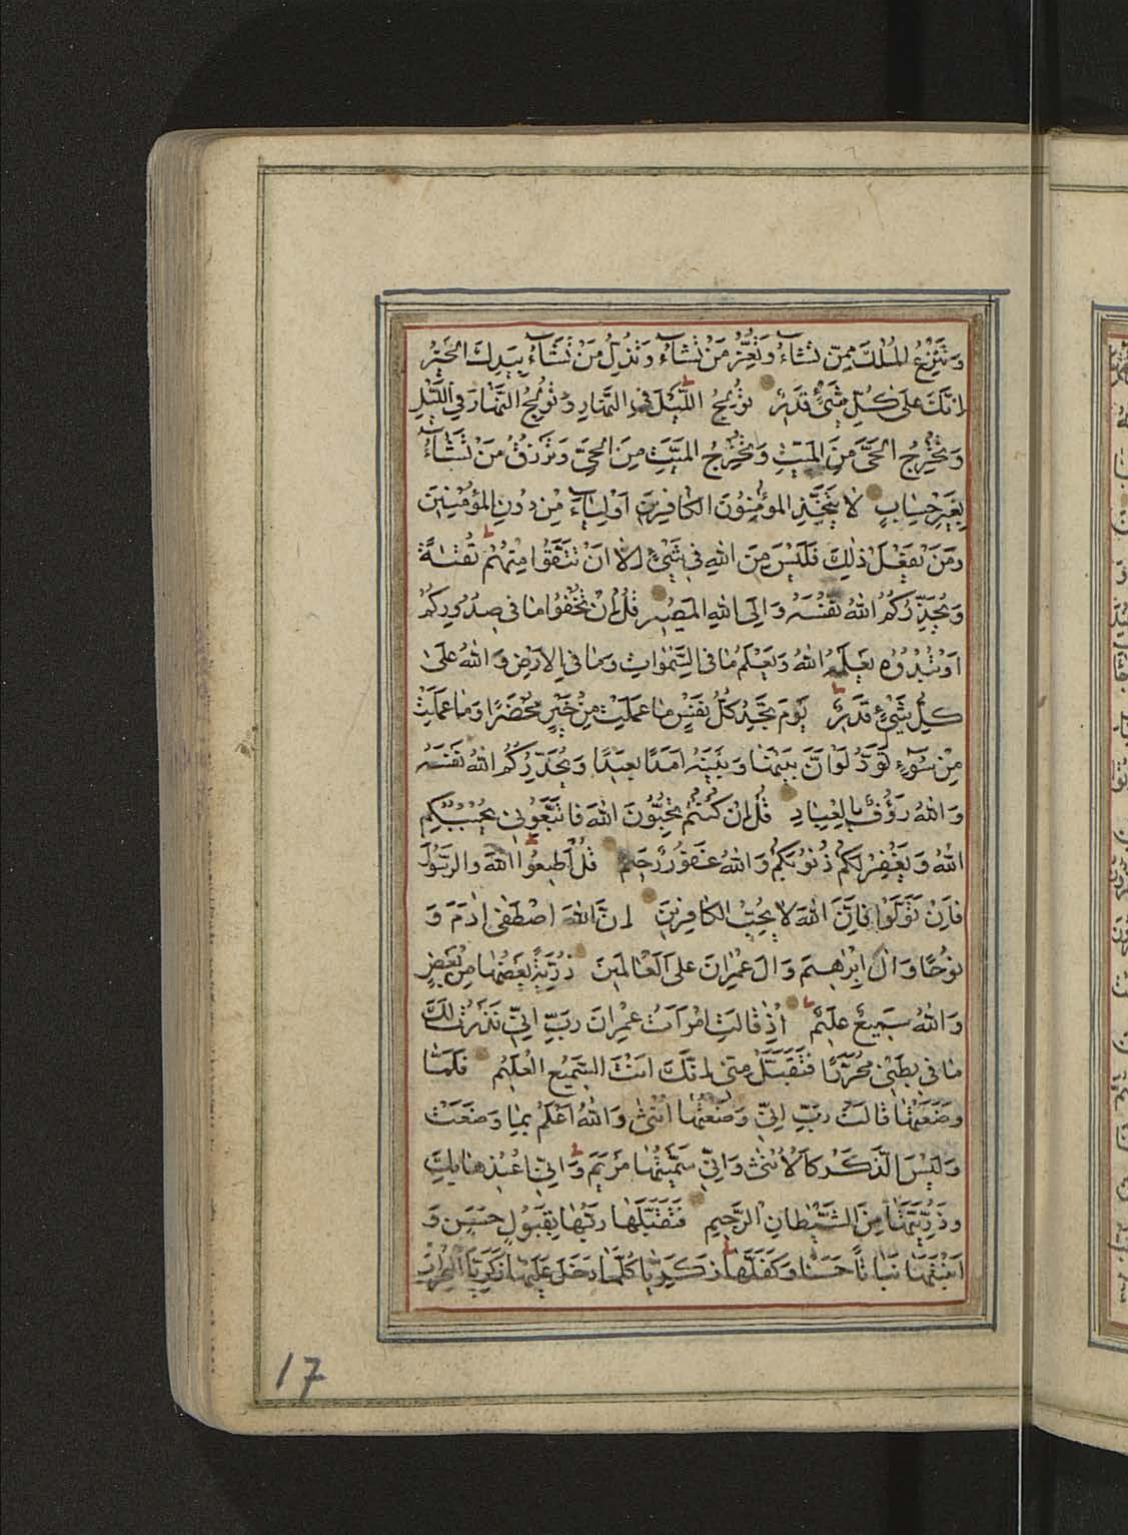 وَتَنْزِعُ الْمُلْكَ مِمَّنْ تَشَآءُ وَتُعِزُّ مَنْ تَشَآءُ وَتُذِلُّ مَنْ تَشَآءُ بِيَدِكَ الْخَيْرُ
اِنَّكَ عَلَى كُلِّ شَيْءٍ قَدِيْرٌ تُوْلِجُ اللَّيْلَ فِي النَّهَارِ وَتُوْلِجُ النَّهَارَ فِي اللَّيْلِ
وَتُخْرِجُ الْحَيَّ مِنَ الْمَيِّتِ وَتُخْرِجُ الْمَيِّتَ مِنَ الْحَيِّ وَتَرْزُقُ مَنْ تَشَآءُ
بِغَيْرِ حِسَابٍ لَا يَتَّخِذِ الْمُؤْمِنُوْنَ الْكَافِرِيْنَ اَوْلِيَآءَ مِنْ دُوْنِ الْمُؤْمِنِيْنَ
وَمَنْ يَفْعَلْ ذٰلِكَ فَلَيْسَ مِنَ اللهِ فِي شَيْءٍ اِلَّا اَنْ تَتَّقُوْا مِنْهُمْ تُقٰىةً
وَيُحَذِّرُكُمُ اللهُ نَفْسَهُ وَاِلَى اللهِ الْمَصِيْرُ قُلْ اِنْ تُخْفُوْا مَا فِي صُدُوْرِكُمْ
اَوْ تُبْدُوْهُ يَعْلَمْهُ اللهُ وَيَعْلَمُ مَا فِي السَّمٰوَاتِ وَمَا فِي الْاَرْضِ وَاللهُ عَلٰى
كُلِّ شَيْءٍ قَدِيْرٌ يَوْمَ تَجِدُ كُلُّ نَفْسٍ مَا عَمِلَتْ مِنْ خَيْرٍ مُحْضَرًا وَمَا عَمِلَتْ
مِنْ سُوٓءٍ تَوَدُّ لَوْ اَنَّ بَيْنَهَا وَبَيْنَهُ اَمَدًا بَعِيْدًا وَيُحَذِّرُكُمُ اللهُ نَفْسَهُ
وَاللهُ رَؤُفٌ بِالْعِبَادِ قُلْ اِنْ كُنْتُمْ تُحِبُّوْنَ اللهَ فَاتَّبِعُوْنِي يُحْبِبْكُمُ
اللهُ وَيَغْفِرْ لَكُمْ ذُنُوْبَكُمْ وَاللهُ غَفُوْرٌ رَحِيْمٌ قُلْ اَطِيْعُوا اللهَ وَالرَّسُوْلَ
فَاِنْ تَوَلَّوْا فَاِنَّ اللهَ لَا يُحِبُّ الْكَافِرِيْنَ اِنَّ اللهَ اصْطَفٰى اٰدَمَ وَ
نُوْحًا وَاٰلَ اِبْرٰهِيْمَ وَاٰلَ عِمْرٰانَ عَلَى الْعَالَمِيْنَ ذُرِّيَّةً بَعْضُهَا مِنْ بَعْضٍ
وَاللهُ سَمِيْعٌ عَلِيْمٌ اِذْ قَالَتِ امْرَاَتُ عِمْرٰانَ رَبِّ اِنِّي نَذَرْتُ لَكَ
مَا فِي بَطْنِيْ مُحَرَّرًا فَتَقَبَّلْ مِنِّي اِنَّكَ اَنْتَ السَّمِيْعُ الْعَلِيْمُ فَلَمَّا
وَضَعَتْهَا قَالَتْ رَبِّ اِنِّي وَضَعْتُهَا اُنْثٰى وَاللهُ اَعْلَمُ بِمَا وَضَعَتْ
وَلَيْسَ الذَّكَرُ كَالْاُنْثٰى وَاِنِّي سَمَّيْتُهَا مَرْيَمَ وَاِنِّي اُعِيْذُهَا بِكَ
وَذُرِّيَّتَهَا مِنَ الشَّيْطَانِ الرَّجِيْمِ فَتَقَبَّلَهَا رَبُّهَا بِقَبُوْلٍ حَسَنٍ وَ
اَنْبَتَهَا نَبَاتًا حَسَنًا وَكَفَّلَهَا زَكَرِيَّا كُلَّمَا دَخَلَ عَلَيْهَا زَكَرِيَّا الْمِحْرَابَ
17